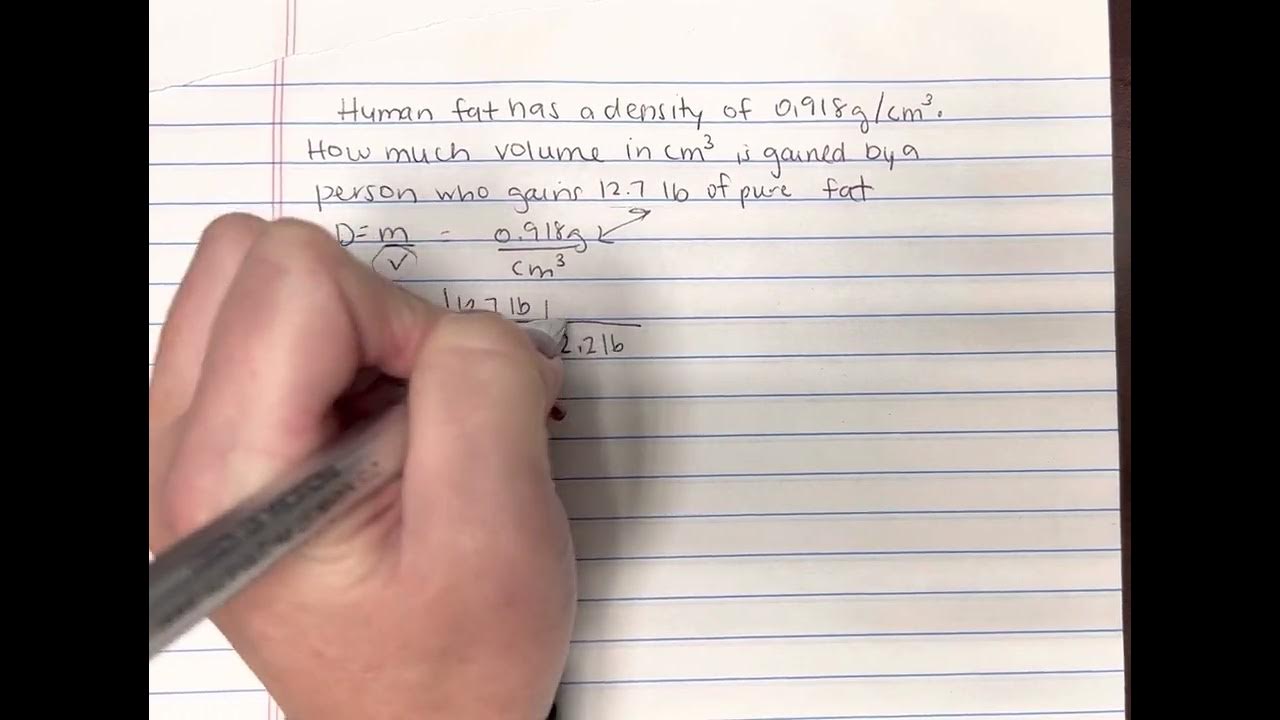 Human fat has a density of 0.918g/cm³.
How much volume in cm³ is gained by a
person who gains 12.7 lb of pure fat
D = m = 0.918g
V cm³
12.7 lb
2.2 lb